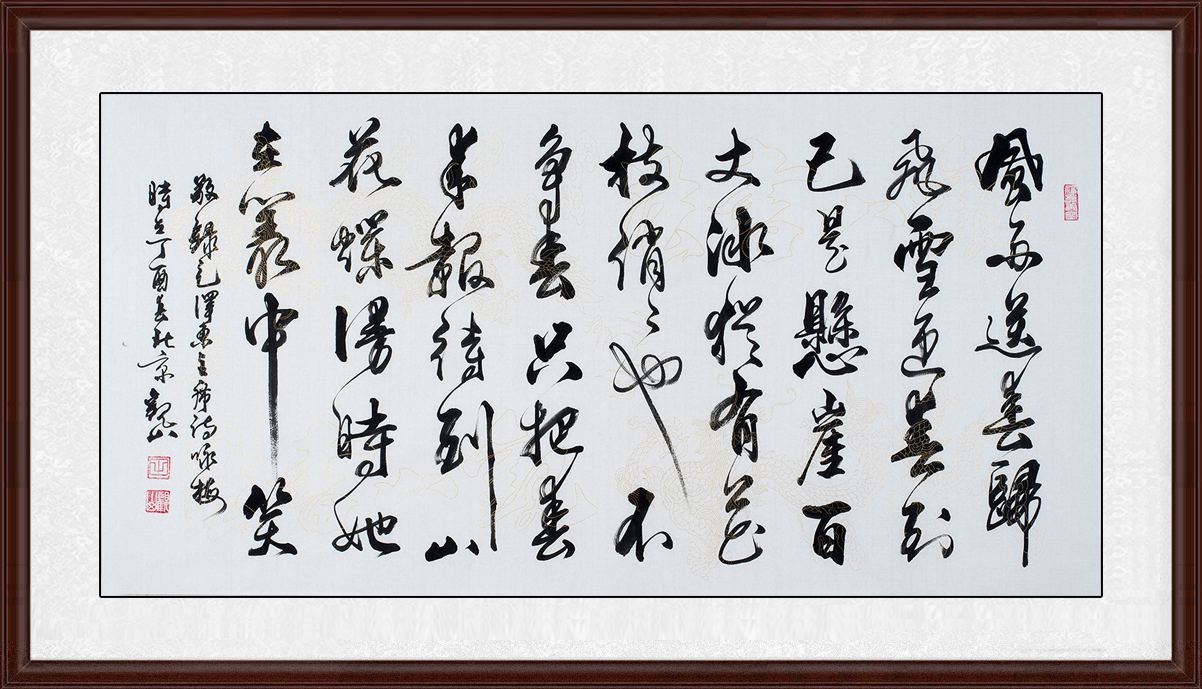 風雨送春歸
飛雪迎春到
已是懸崖百
丈冰猶有花
枝俏〻也不
争春只把春
来報待到山
花爛漫時她
在叢中笑
敬録毛澤東主席詩咏梅
時在丁酉春北京觀山